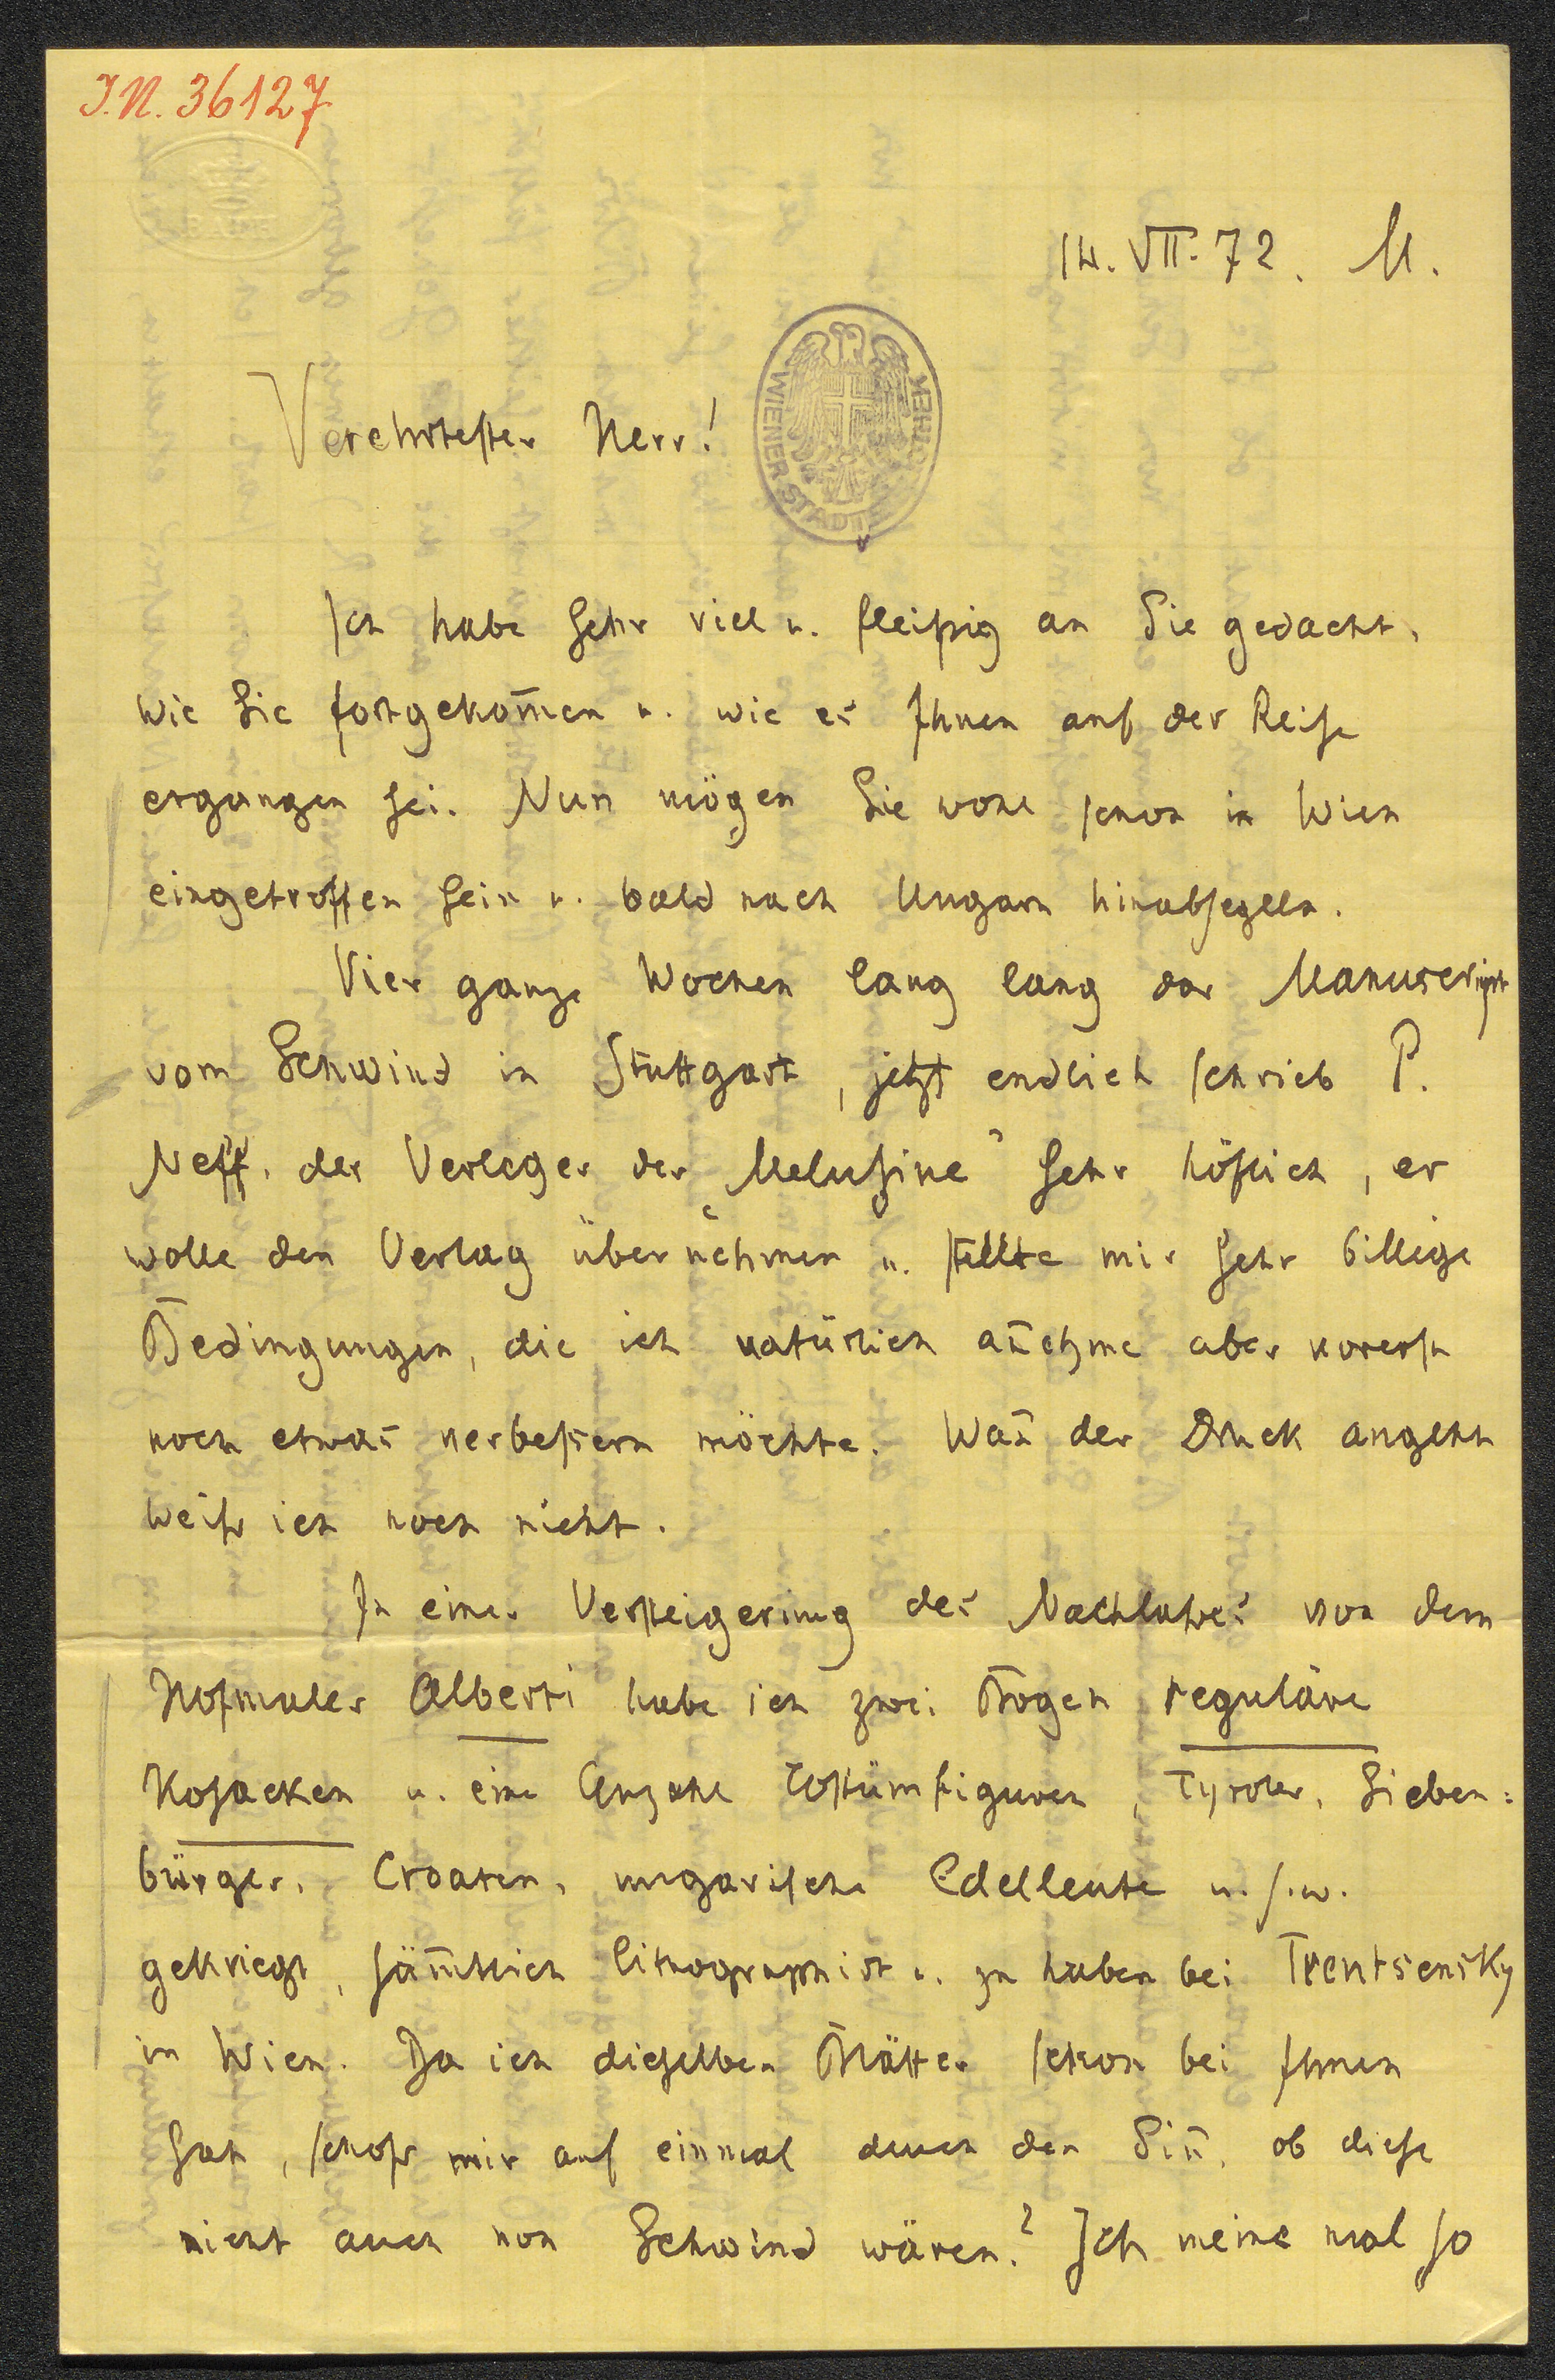 J.N. 36127
14. VII. 72. M.
Verehrtester Herr!
WIENER STÄDTISCHE
Ich habe sehr viel u. fleißig an Sie gedacht,
wie Sie fortgekom̄en u. wie es Ihnen auf der Reise
ergangen sei. Nun mögen Sie wohl schon in Wien
eingetroffen sein u. bald nach Ungarn hinabsegeln.
Vier ganze Wochen lang lang das Manuscript
vom Schwind in Stuttgart, jetzt endlich schrieb P.
Neff, der Verleger der „Melusine“ sehr höflich, er
wolle den Verlag übernehmen u. stellte mir sehr billige
Bedingungen, die ich natürlich an̄ehme aber vorerst
noch etwas verbessern möchte. Wan̄ der Druck angeht
weiß ich noch nicht.
In einer Versteigerung des Nachlaßes von dem
Hofmaler Alberti habe ich zwei Bogen reguläre
Kosacken u. eine Anzahl Costümfiguren, Tyroler, Sieben:
bürger, Croaten, ungarische Edelleute u.s.w.
gekriegt, säm̄tlich lithographirt u. zu haben bei Trentsensky
in Wien. Da ich dieselben Blätter schon bei Ihnen
sah, schoß mir auf einmal durch den Sin̄, ob diese
nicht auch von Schwind wären? Ich meine mal so